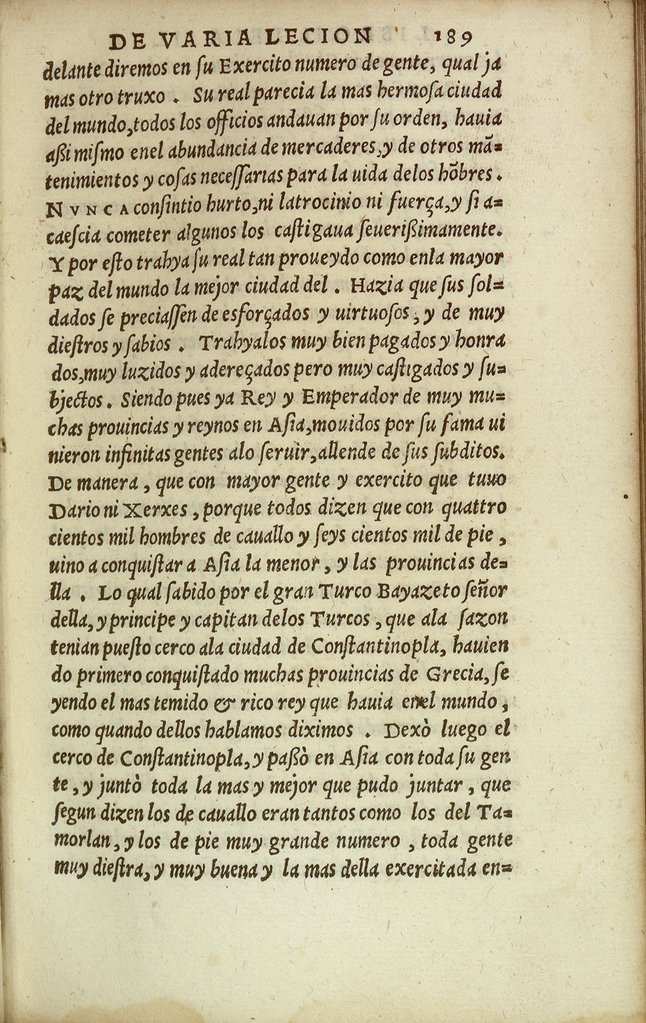 DE VARIA LECION 189
delante diremos en ſu Exercito numero de gente, qual ja
mas otro truxo . Su real parecia la mas hermoſa ciudad
del mundo, todos los officios andauan por ſu orden, hauia
aßi miſmo enel abundancia de mercaderes, y de otros mã=
tenimientos y coſas neceſſarias para la uida delos hõbres .
NVNCA conſintio hurto, ni latrocinio ni fuerça, y ſi a=
caeſcia cometer algunos los caſtigaua ſeuerißimamente.
Y por eſto trahya ſu real tan proueydo como enla mayor
paz del mundo la mejor ciudad del . Hazia que ſus ſol=
dados ſe preciaſſen de esforçados y uirtuoſos, y de muy
dieſtros y ſabios . Trahyalos muy bien pagados y honra
dos, muy luzidos y adereçados pero muy caſtigados y ſu=
bjectos. Siendo pues ya Rey y Emperador de muy mu=
chas prouincias y reynos en Aſia, mouidos por ſu fama ui
nieron infinitas gentes alo ſeruir, allende de ſus ſubditos.
De manera, que con mayor gente y exercito que tuuo
Dario ni Xerxes, porque todos dizen que con quattro
cientos mil hombres de cauallo y ſeys cientos mil de pie,
uino a conquiſtar a Aſia la menor, y las prouincias de=
lla . Lo qual ſabido por el gran Turco Bayazeto ſeñor
della, y principe y capitan delos Turcos, que ala ſazon
tenian pueſto cerco ala ciudad de Conſtantinopla, hauien
do primero conquiſtado muchas prouincias de Grecia, ſe
yendo el mas temido & rico rey que hauia enel mundo,
como quando dellos hablamos diximos . Dexò luego el
cerco de Conſtantinopla, y paßò en Aſia con toda ſu gen
te, y juntò toda la mas y mejor que pudo juntar, que
ſegun dizen los de cauallo eran tantos como los del Ta=
morlan, y los de pie muy grande numero, toda gente
muy dieſtra, y muy buena y la mas della exercitada en=